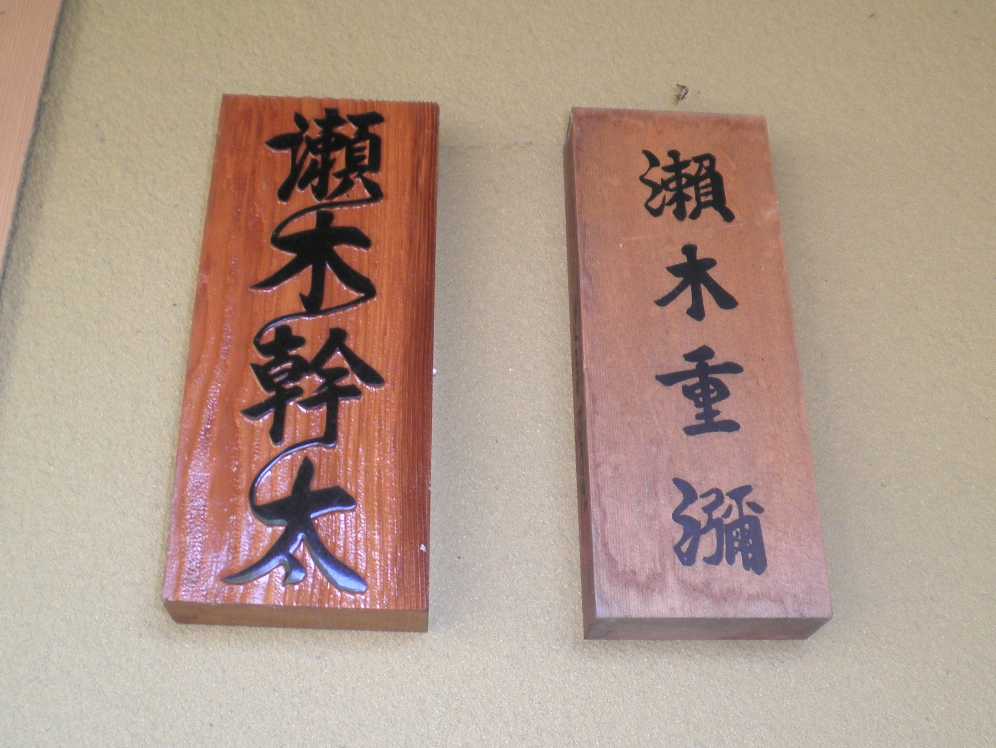 瀬木幹太
瀬木重瀰